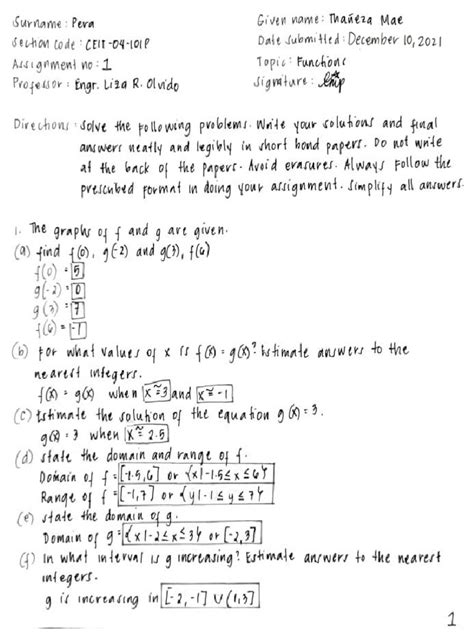 Surname: Pera
Given name: Thañeza Mae
Section code: CEIT-04-101P
Date submitted: December 10, 2021
Assignment no: 1
Topic: Functions
Professor: Engr. Liza R. Olvido
Signature:
Directions: Solve the following problems. Write your solutions and final
answers neatly and legibly in short bond papers. Do not write
at the back of the papers. Avoid erasures. Always follow the
prescribed format in doing your assignment. Simplify all answers.
1. The graphs of f and g are given.
(a) find f(0), g(-2) and g(3), f(6)
f(0) = 5
g(-2) = 0
g(3) = 7
f(6) = -1
(b) For what values of x is f(x) = g(x)? Estimate answers to the
nearest integers.
f(x) = g(x) when x ≅ 3 and x ≅ -1
(c) Estimate the solution of the equation g(x) = 3.
g(x) = 3 when x ≅ 2.5
(d) State the domain and range of f.
Domain of f = [-1.5, 6] or {x|-1.5 ≤ x ≤ 6}
Range of f = [-1, 7] or {y|-1 ≤ y ≤ 7}
(e) State the domain of g.
Domain of g = {x|-2 ≤ x ≤ 3} or [-2, 3]
(f) In what interval is g increasing? Estimate answers to the nearest
integers.
g is increasing in [-2, -1] ∪ (1, 3]
1